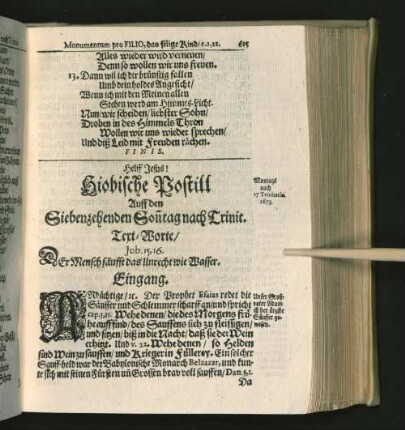 Monumentum pro FILIO, das selige Kind / c. 1, 21. 615
Alles wieder wird verneuen /
Denn so wollen wir uns freuen.
13. Dann wil ich dir brünstig fallen
Umb dein holdes Angesicht /
Wenn ich mit den Meinen allen
Stehen werd am Himmels-Licht.
Nun wir scheiden / liebster Sohn /
Droben in des Himmels Thron
Wollen wir uns wieder sprechen /
Und diß Leid mit Freuden rächen.
FINIS.
Helff Jesus!
Hiobische Postill
Auff den
Siebenzehenden Soñtag nach Trinit.
Text-Worte /
Job. 15, 16.
DEr Mensch säufft das Unrecht wie Wasser.
Montags
nach
17 Trinitatis.
1673.
Eingang.
ANdächtige / ꝛc. Der Prophet Esaias redet die
Säuffer und Schlemmer scharff an und spricht
cap. 5, 11. Wehe denen / die des Morgens frü-
he auff sind / des Sauffens sich zu fleissigen /
und sitzen / biß in die Nacht / daß sie der Wein
erhitzt. Und v. 22. Wehe denen / so Helden
sind Wein zu sauffen / und Krieger in Füllerey. Ein solcher
Sauff-held war der Babylonische Monarch Belzazar, und kun-
te sich mit seinen Fürsten uñ Grossen brav voll sauffen / Dan. 5, 1.
Da
Unser Groß-
vater Adam
ist der ärgste
Säuffer ge-
wesen.